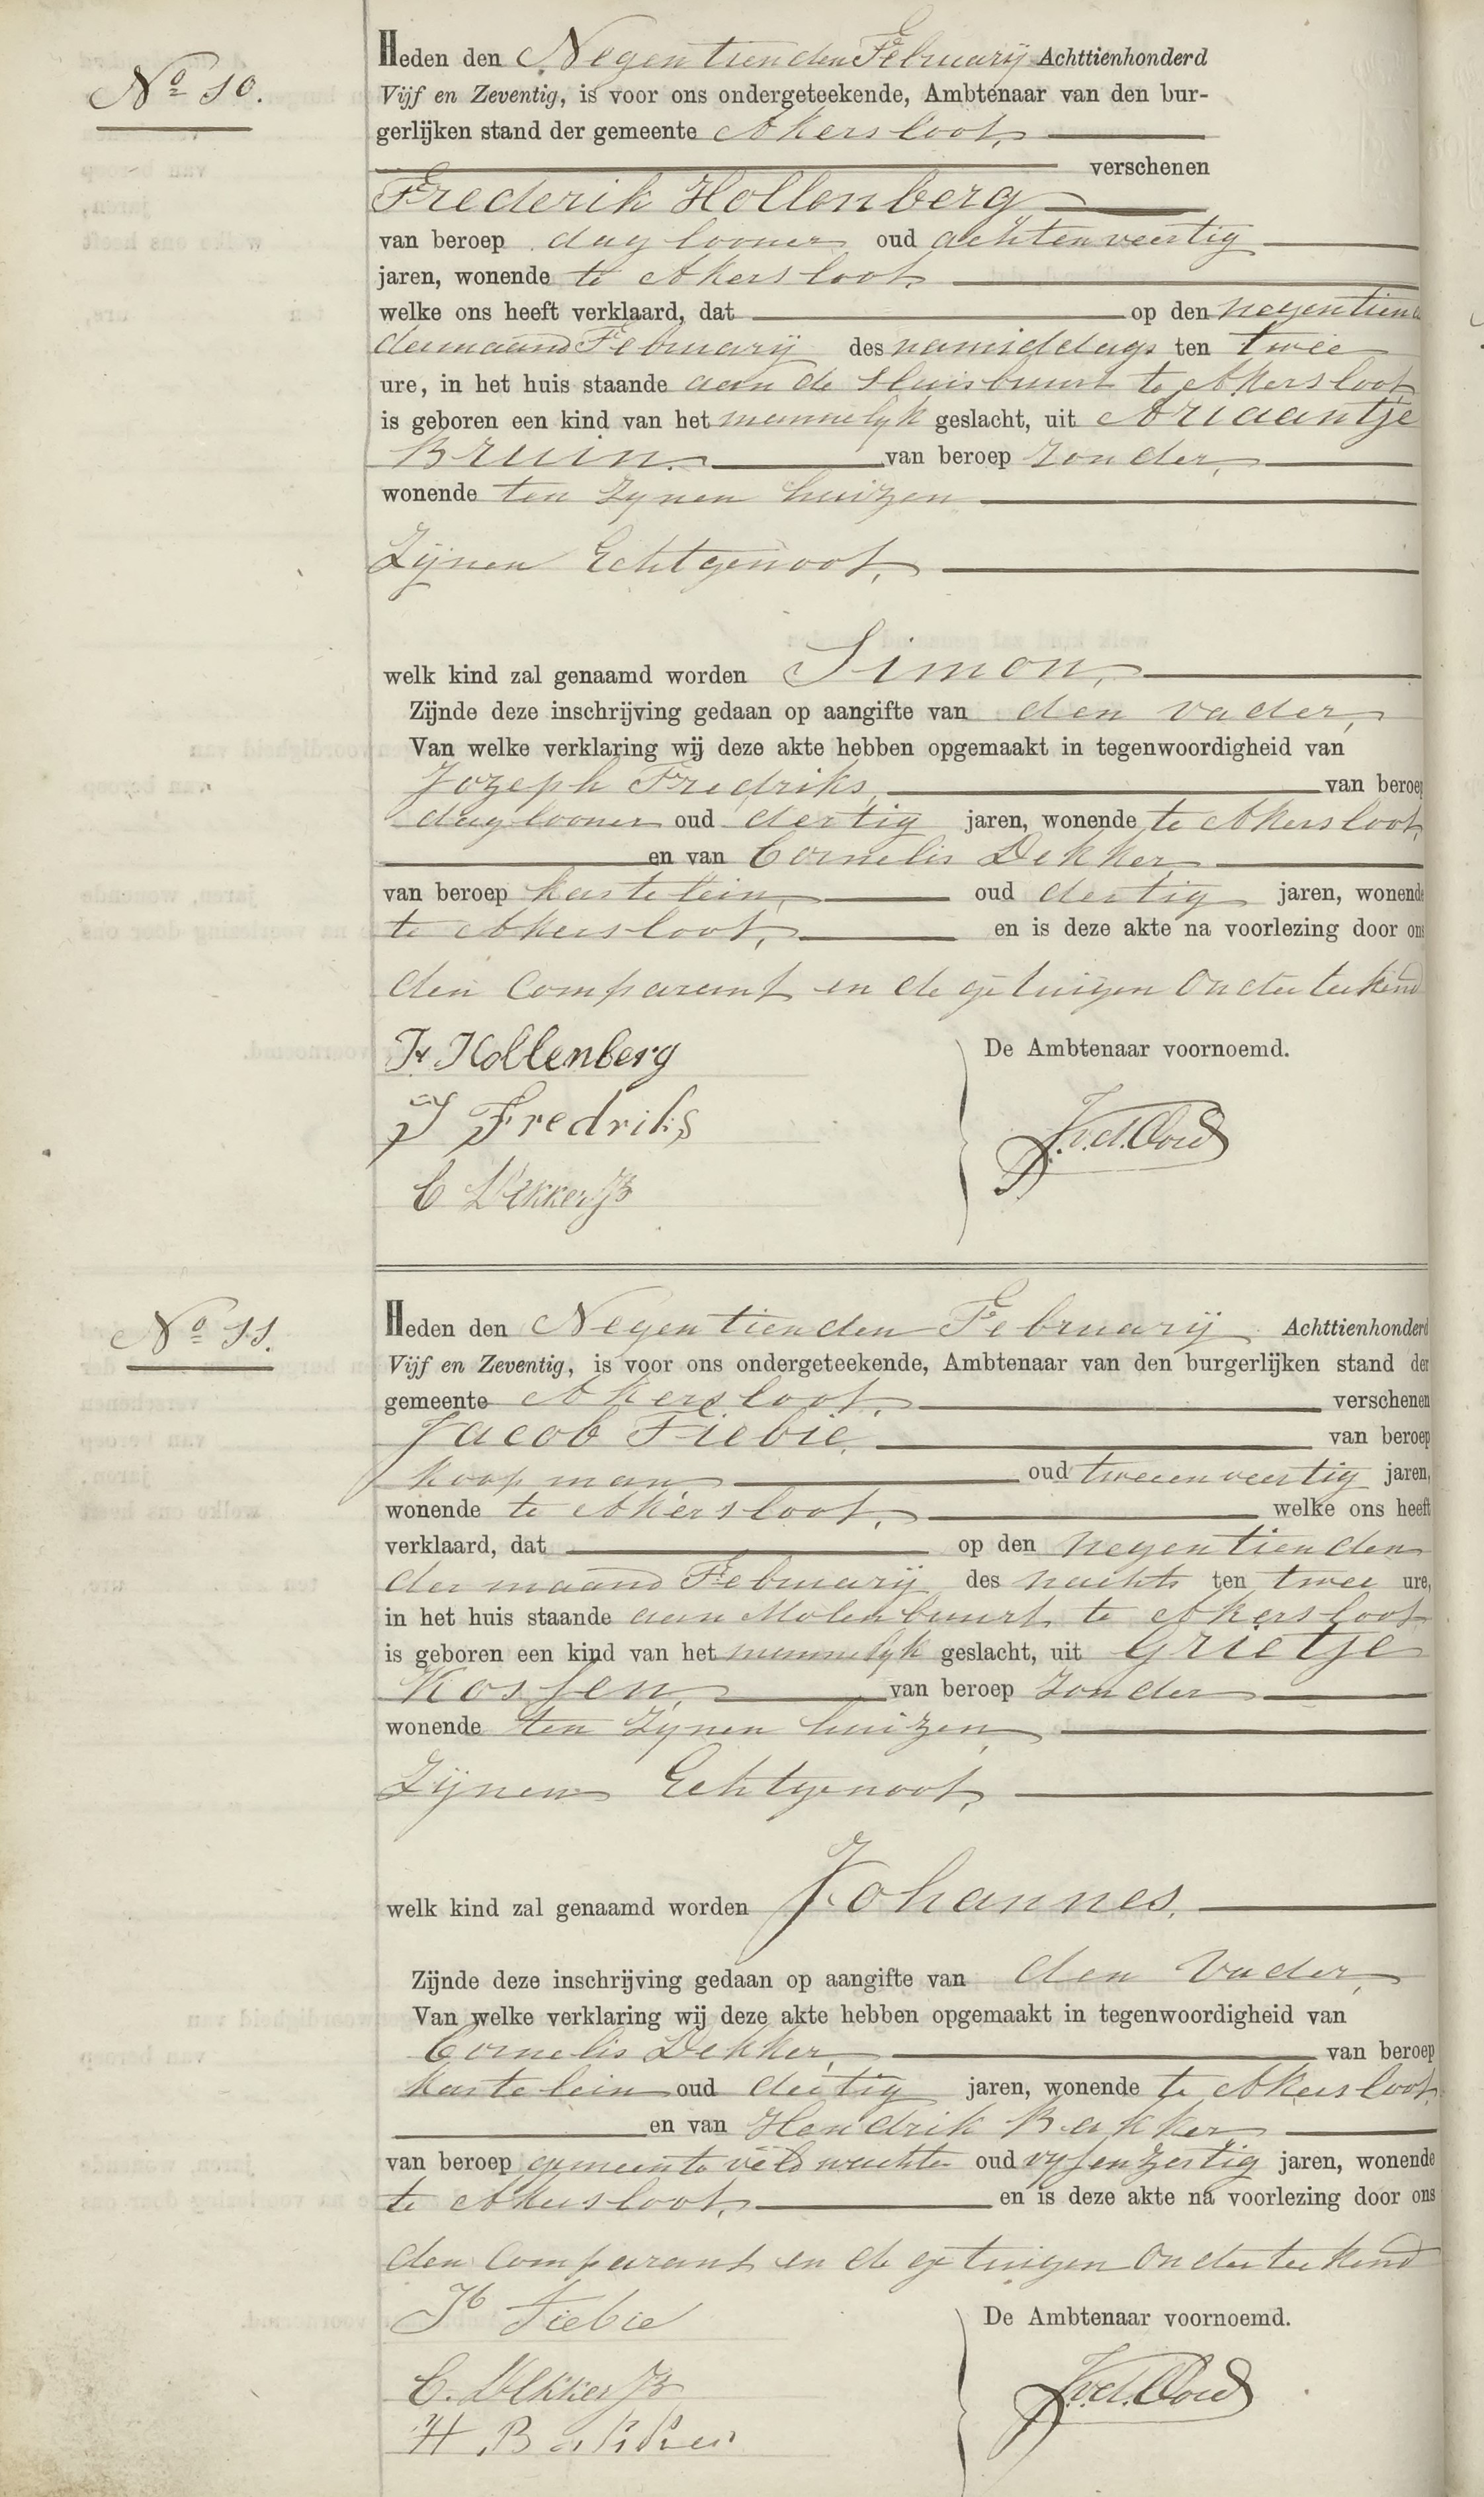 No 10.
Heden den Negentienden February Achttienhonderd
Vijf en Zeventig, is voor ons ondergeteekende, Ambtenaar van den bur-
gerlijken stand der gemeente Akersloot,
verschenen
Frederik Hollenberg
van beroep daglooner oud achtenveertig
jaren, wonende te Akersloot,
welke ons heeft verklaard, dat op den negentien
der maand February des namiddags ten twee
ure, in het huis staande aan de Sluisbuurt te Akersloot
is geboren een kind van het mannelyk geslacht, uit Ariaantje
Bruin. van beroep zonder,
wonende ten zynen huizen
Zijnen Echtgenoot,
welk kind zal genaamd worden Simon,
Zijnde deze inschrijving gedaan op aangifte van den vader,
Van welke verklaring wij deze akte hebben opgemaakt in tegenwoordigheid van
Jozeph Fredriks, van beroep
daglooner oud dertig jaren, wonende te Akersloot,
en van Cornelis Dekker
van beroep kastelein, oud dertig jaren, wonende
te Akersloot, en is deze akte na voorlezing door ons
den Comparant en de getuigen Onderteekend
Fr Hollenberg De Ambtenaar voornoemd.
J Fredriks J.v.d.Oord
C Dekker Jz
No 11.
Heden den Negentienden February Achttienhonderd
Vijf en Zeventig, is voor ons ondergeteekende, Ambtenaar van den burgerlijken stand der
gemeente Akersloot, verschenen
Jacob Fiebie, van beroep
koopman oud tweeenveertig jaren,
wonende te Akersloot, welke ons heeft
verklaard, dat op den negentienden
der maand February des nachts ten twee ure,
in het huis staande aan Molenbuurt te Akersloot
is geboren een kind van het mannelyk geslacht, uit Grietje
Kossen, van beroep zonder
wonende ten zynen huizen,
Zijnen Echtgenoot,
welk kind zal genaamd worden Johannes,
Zijnde deze inschrijving gedaan op aangifte van den Vader,
Van welke verklaring wij deze akte hebben opgemaakt in tegenwoordigheid van
Cornelis Dekker, van beroep
kastelein oud dertig jaren, wonende te Akersloot,
en van Hendrik Bakker
van beroep gemeente veldwachter oud vyfenzestig jaren, wonende
te Akersloot, en is deze akte na voorlezing door ons
den Comparant en de getuigen Onderteekend
Jb Fiebie De Ambtenaar voornoemd.
C. Dekker Jz J.v.d.Oord
H Bakker